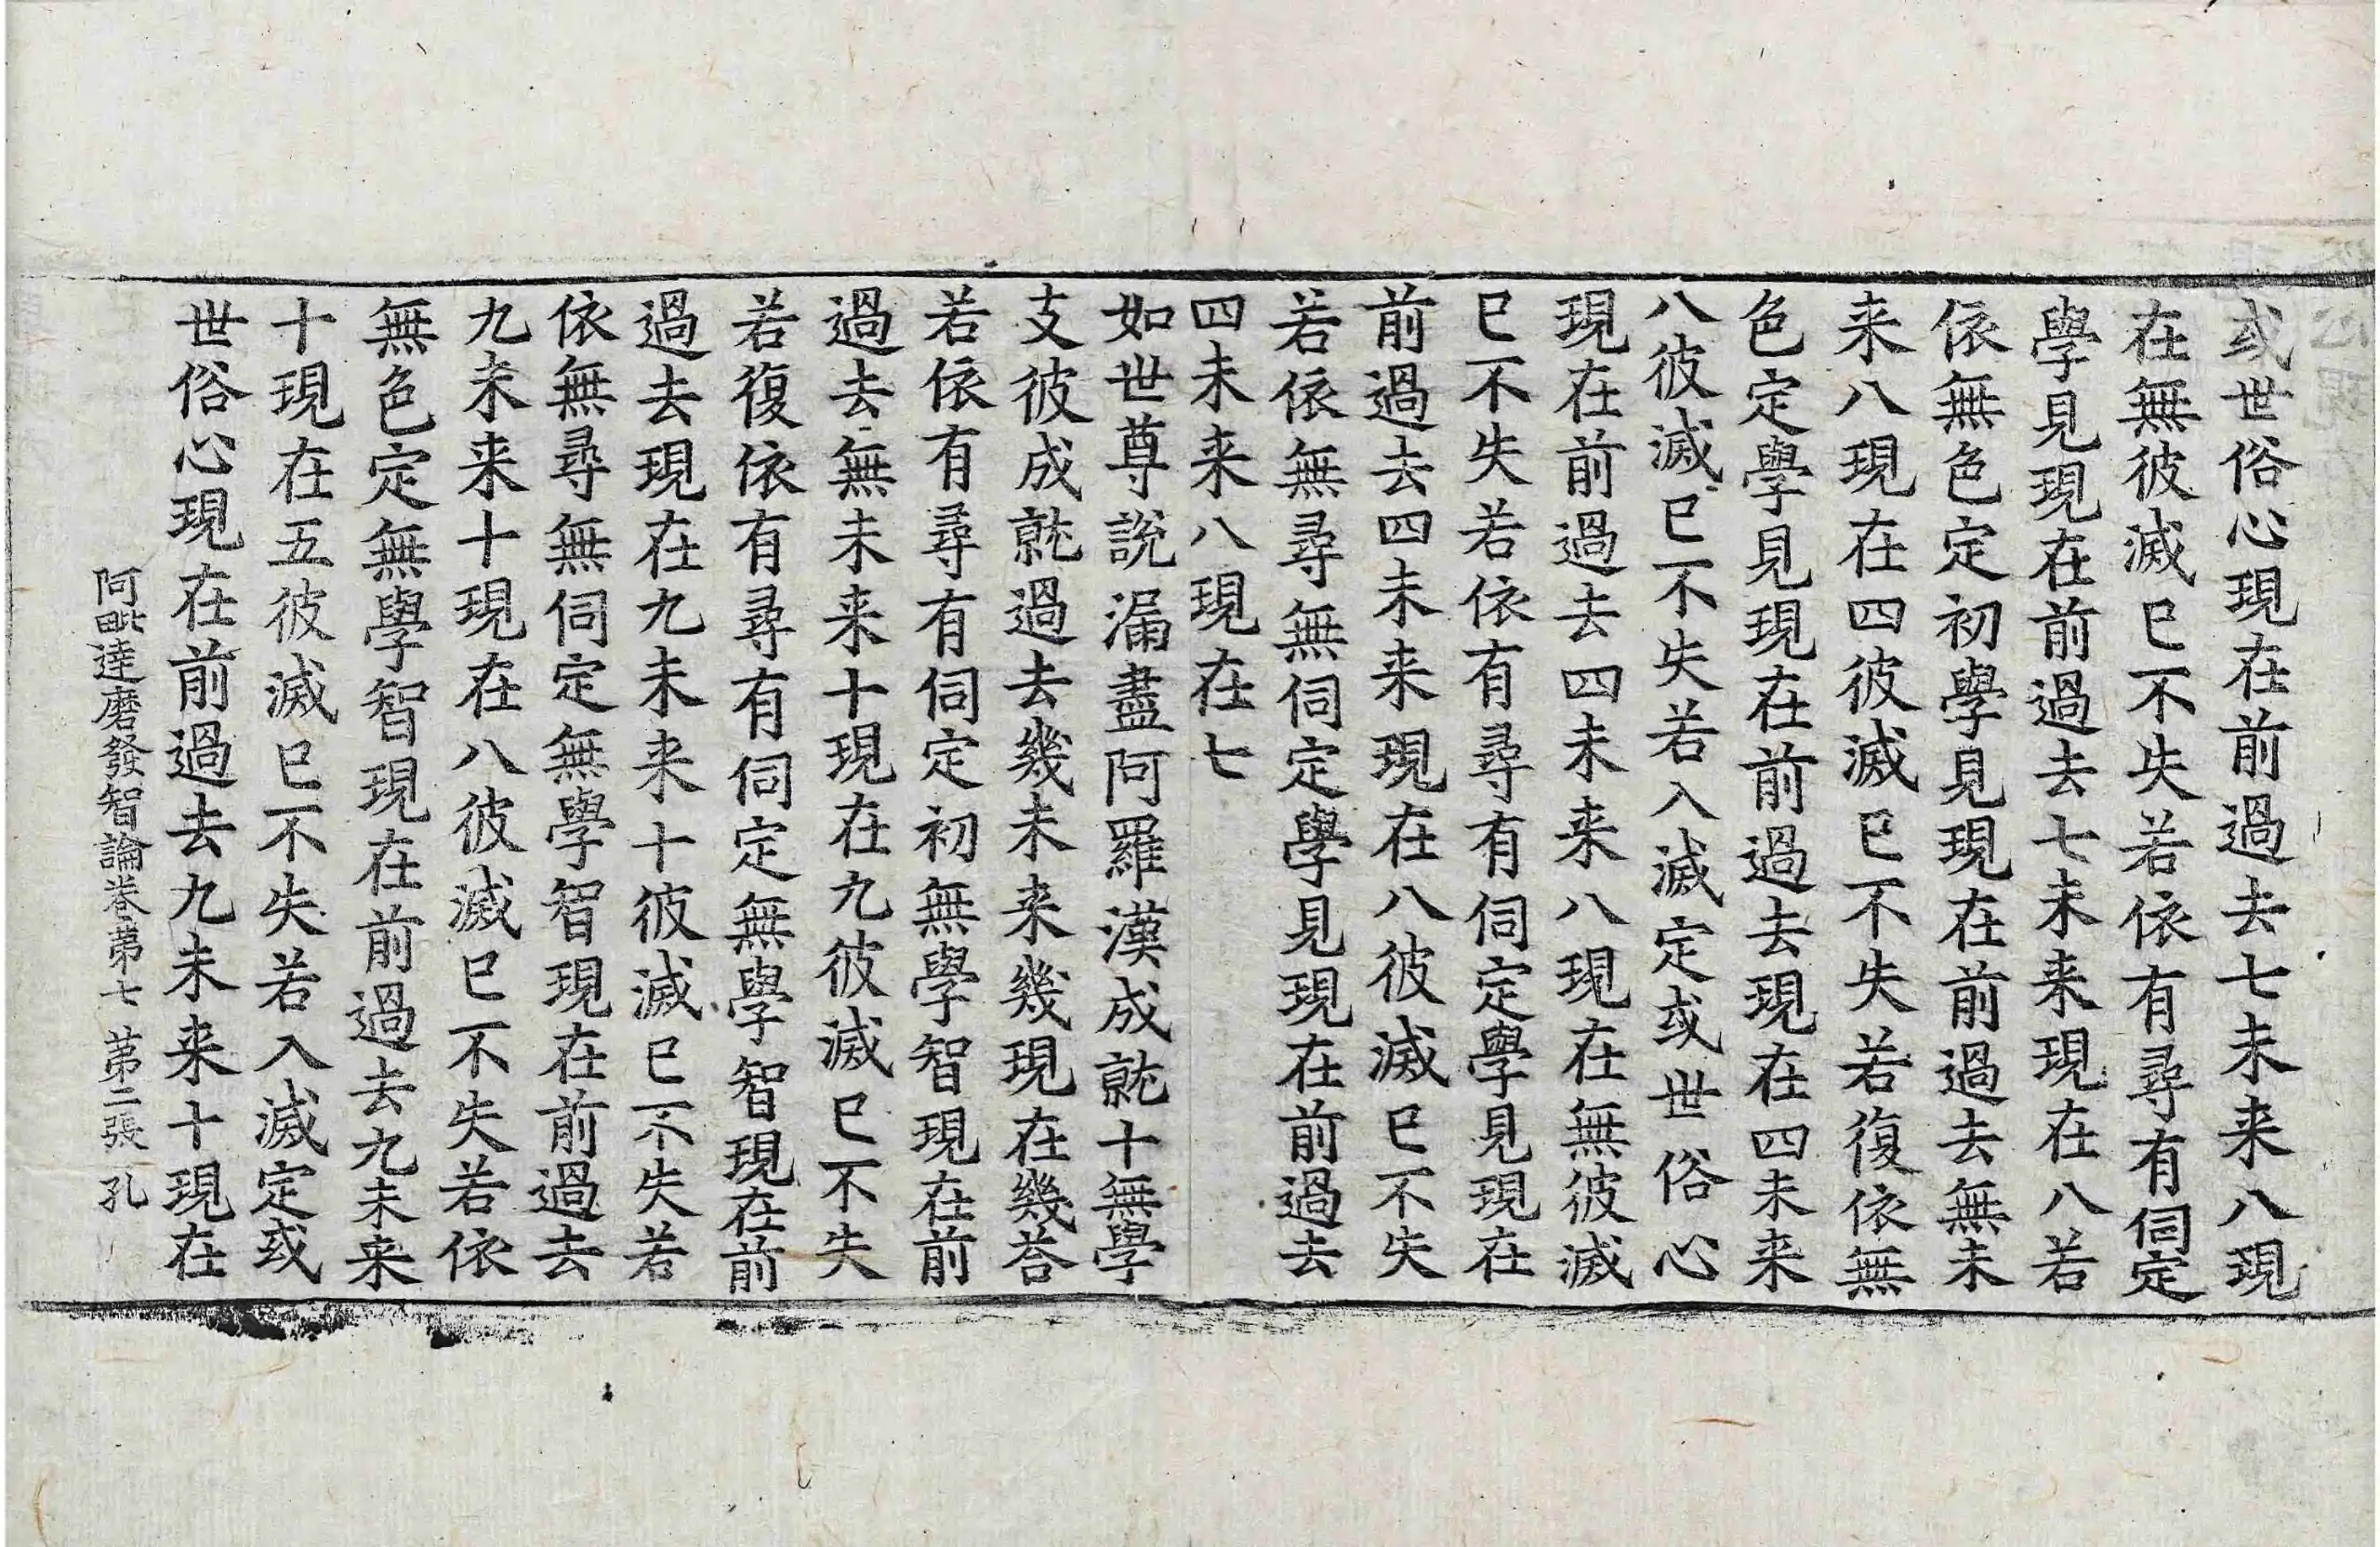 或世俗心現在前過去七未来八現
在無彼滅已不失若依有尋有伺定
學見現在前過去七未来現在八若
依無色定初學見現在前過去無未
来八現在四彼滅已不失若復依無
色定學見現在前過去現在四未来
八彼滅已不失若入滅定或世俗心
現在前過去四未来八現在無彼滅
已不失若依有尋有伺定學見現在
前過去四未来現在八彼滅已不失
若依無尋無伺定學見現在前過去
四未来八現在七
如世尊說漏盡阿羅漢成就十無學
支彼成就過去幾未来幾現在幾荅
若依有尋有伺定初無學智現在前
過去無未来十現在九彼滅已不失
若復依有尋有伺定無學智現在前
過去現在九未来十彼滅已不失若
依無尋無伺定無學智現在前過去
九未来十現在八彼滅已不失若依
無色定無學智現在前過去九未来
十現在五彼滅已不失若入滅定或
世俗心現在前過去九未来十現在
阿毗達磨發智論卷第七 第二張 孔